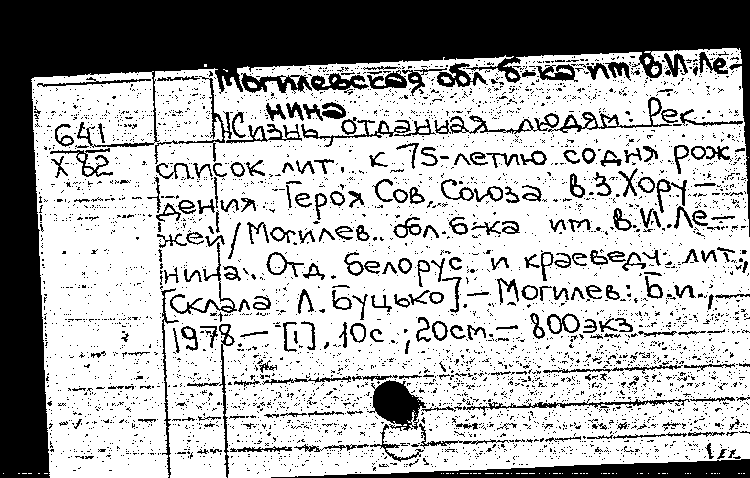 Могилевская обл. б-ка им. В.И. Ле-
нина
641
Х 82
Жизнь, отданная людям: Рек.
список лит. к 75-летию со дня рож-
дения Героя Сов. Союза В.З. Хору-
жей / Могилев. обл. б-ка им. В.И. Ле-
нина. Отд. белорус. и краеведч. лит.;
[Склала Л. Буцько]. - Могилев: Б.и.,
1978. - [1], 10с.; 20см. - 800экз.